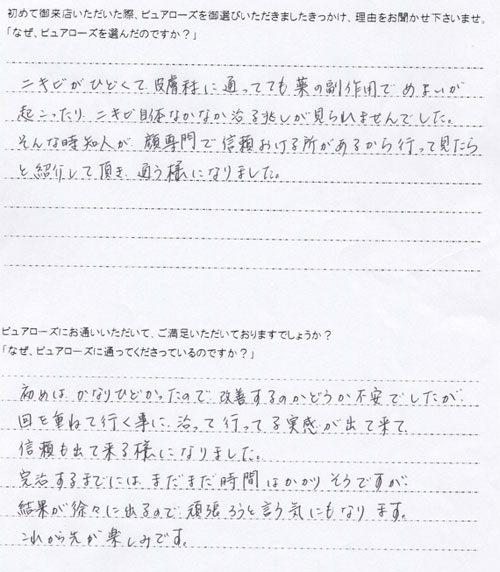 初めて御来店いただいた際、ピュアローズを御選びいただきましたきっかけ、理由をお聞かせ下さいませ。
「なぜ、ピュアローズを選んだのですか？」
ニキビがひどくて皮膚科に通ってても薬の副作用でめまいが
起こったりニキビ自体なかなか治る兆しが見られませんでした。
そんな時知人が、顔専門で信頼おける所があるから行って見たら
と紹介して頂き、通う様になりました。
ピュアローズにお通いいただいて、ご満足いただいておりますでしょうか？
「なぜ、ピュアローズに通ってくださっているのですか？」
初めは、かなりひどかったので、改善するのかどうか不安でしたが、
回を重ねて行く事に、治って行ってる実感が出て来て、
信頼も出て来る様になりました。
完治するまでには、まだまだ時間はかかりそうですが、
結果が徐々に出るので、頑張ろうと言う気にもなります。
これから先が楽しみです。